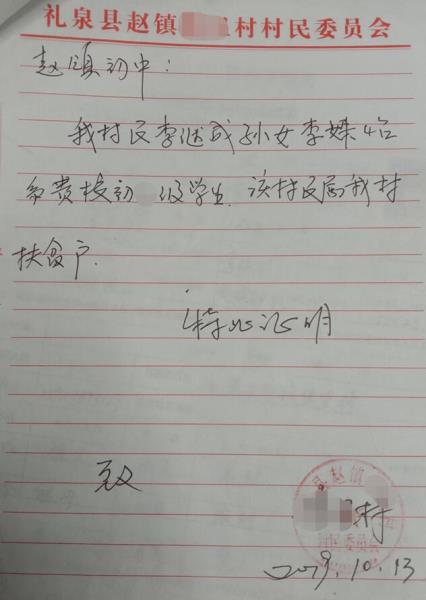 礼泉县赵镇 村村民委员会
赵镇初中：
我村民李继成孙女李姝
贵校初 级学生，该村民属我村
扶贫户.
特此证明
致
县赵镇
村
村民委员会
2019.10.13